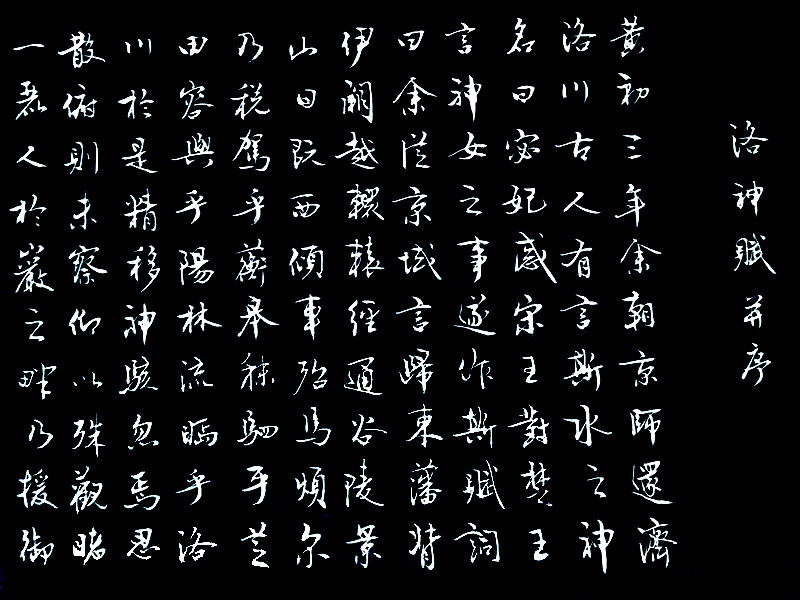 洛神賦并序
黃初三年余朝京師還濟
洛川古人有言斯水之神
名曰宓妃感宋王對楚王
言神女之事遂作斯賦詞
曰余從京域言歸東藩背
伊闕越轘轅經通谷陵景
山日既西傾車殆馬煩尔
乃稅駕乎蘅皋秣駟乎芝
田容與乎陽林流眄乎洛
川於是精移神駭忽焉思
散俯則未察仰以殊觀睹
一麗人於巖之畔乃援御